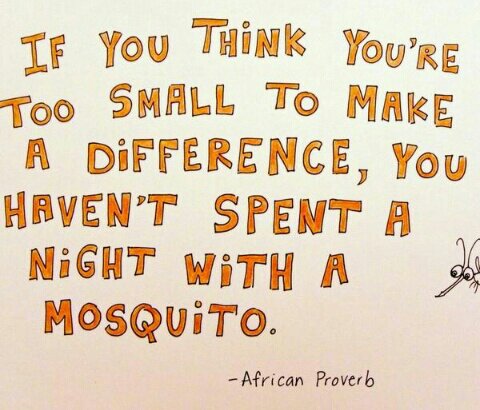 IF YOU THINK YOU'RE
TOO SMALL TO MAKE
A DiFFERENCE, YOU
HAVEN'T SPENT A
NiGHT WiTH A
MOSQUiTO.
-African Proverb